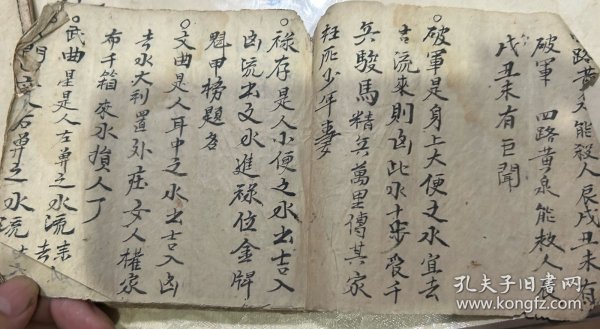 路黃又能殺人辰戌丑未有
破軍 四路黃泉能救人
戊丑未有巨聞
○破軍是身上大便之水宜去
吉流來則凶此水十步受千
兵駿馬精兵萬里傳其家
枉死少年妻
○祿存是人小便之水出吉入
凶流出文水進祿位金牌
魁甲榜題名
○文曲是人耳中之水出吉入凶
去水大利置外庄女人權家
布千箱來水損人丁
○武曲星是人左單之水流
右單之水流
孔夫子旧書网
www.kongfz.com